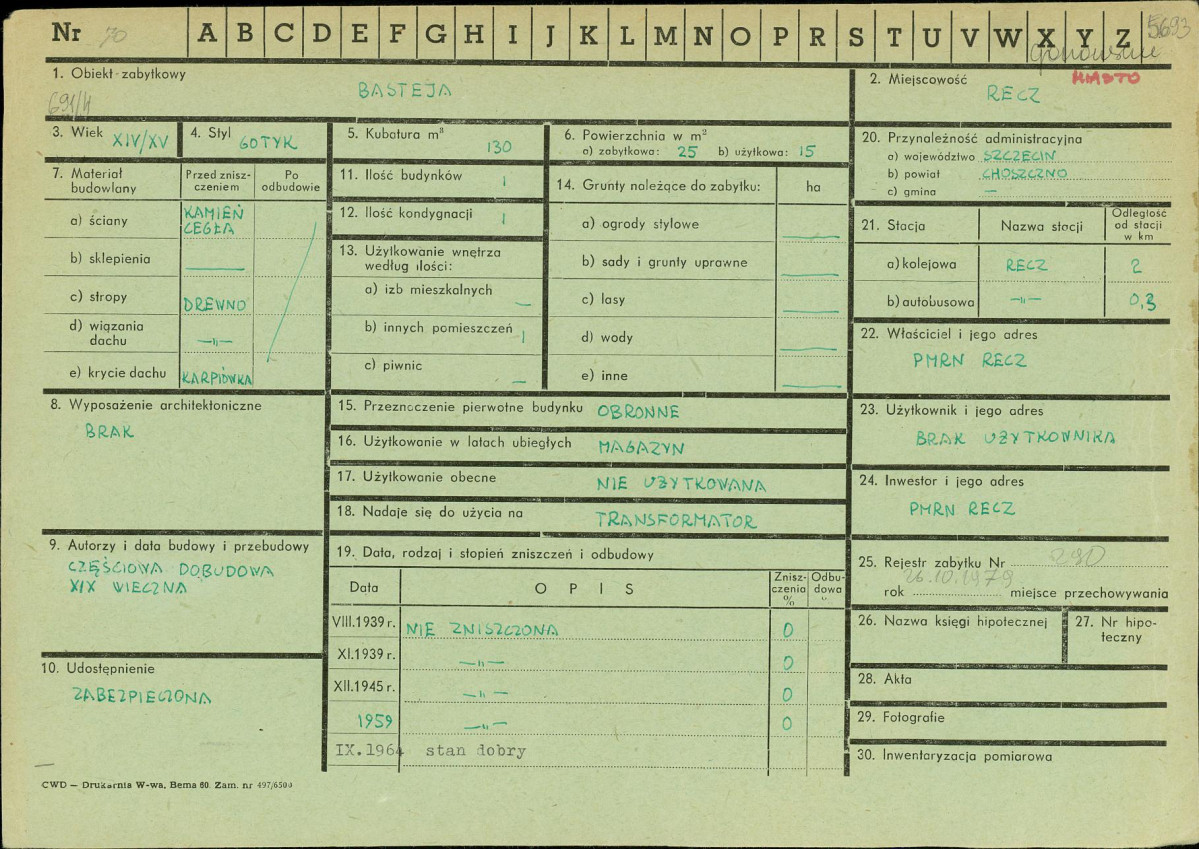 Nr 70 A B C D E F G H I J K L M N O P R S T U V W X Y Z 5693
1. Obiekt zabytkowy
BASTEJA
691/4
2. Miejscowość MIASTO
RECZ
3. Wiek XIV/XV
4. Styl GOTYK
5. Kubatura m³
130
6. Powierzchnia w m²
a) zabytkowa: 25 b) użytkowa: 15
7. Materiał budowlany
Przed zniszczeniem
Po odbudowie
a) ściany KAMIEŃ
CEGŁA
b) sklepienia —
c) stropy DREWNO
d) wiązania
dachu —"—
e) krycie dachu KARPIÓWKA
8. Wyposażenie architektoniczne
BRAK
9. Autorzy i data budowy i przebudowy
CZĘŚCIOWA DOBUDOWA
XIX WIECZNA
10. Udostępnienie
ZABEZPIECZONA
11. Ilość budynków 1
12. Ilość kondygnacji 1
13. Użytkowanie wnętrza
według ilości:
a) izb mieszkalnych —
b) innych pomieszczeń 1
c) piwnic —
14. Grunty należące do zabytku: ha
a) ogrody stylowe —
b) sady i grunty uprawne —
c) lasy —
d) wody —
e) inne —
15. Przeznaczenie pierwotne budynku OBRONNE
16. Użytkowanie w latach ubiegłych MAGAZYN
17. Użytkowanie obecne NIE UŻYTKOWANA
18. Nadaje się do użycia na TRANSFORMATOR
19. Data, rodzaj i stopień zniszczeń i odbudowy
Data OPIS Zniszczenia % Odbudowa %
VIII.1939 r. NIE ZNISZCZONA 0
XI.1939 r. —"— 0
XII.1945 r. —"— 0
1959 —"— 0
IX.1964 stan dobry
20. Przynależność administracyjna
a) województwo SZCZECIN
b) powiat CHOSZCZNO
c) gmina —
21. Stacja Nazwa stacji Odległość od stacji w km
a) kolejowa RECZ 2
b) autobusowa —"— 0,3
22. Właściciel i jego adres
PMRN RECZ
23. Użytkownik i jego adres
BRAK UŻYTKOWNIKA
24. Inwestor i jego adres
PMRN RECZ
25. Rejestr zabytku Nr 290
rok 26.10.1979 miejsce przechowywania
26. Nazwa księgi hipotecznej
27. Nr hipoteczny
28. Akta
29. Fotografie
30. Inwentaryzacja pomiarowa
CWD — Drukarnia W-wa, Bema 60. Zam. nr 497/6500